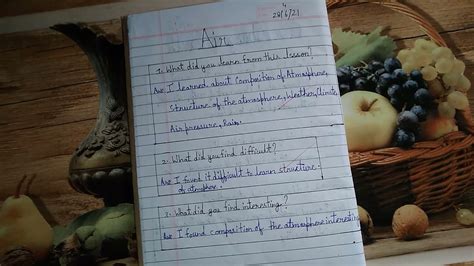 4
28/6/21
Air
1. What did you learn from this lesson?
Ans. I learned about Composition of Atmosphere,
Structure of the atmosphere, Weather, Climate,
Air pressure, Rain.
2. What did you find difficult?
Ans. I found it difficult to learn structure
of atmosphere.
3. What did you find interesting?
Ans. I found composition of the atmosphere interesting